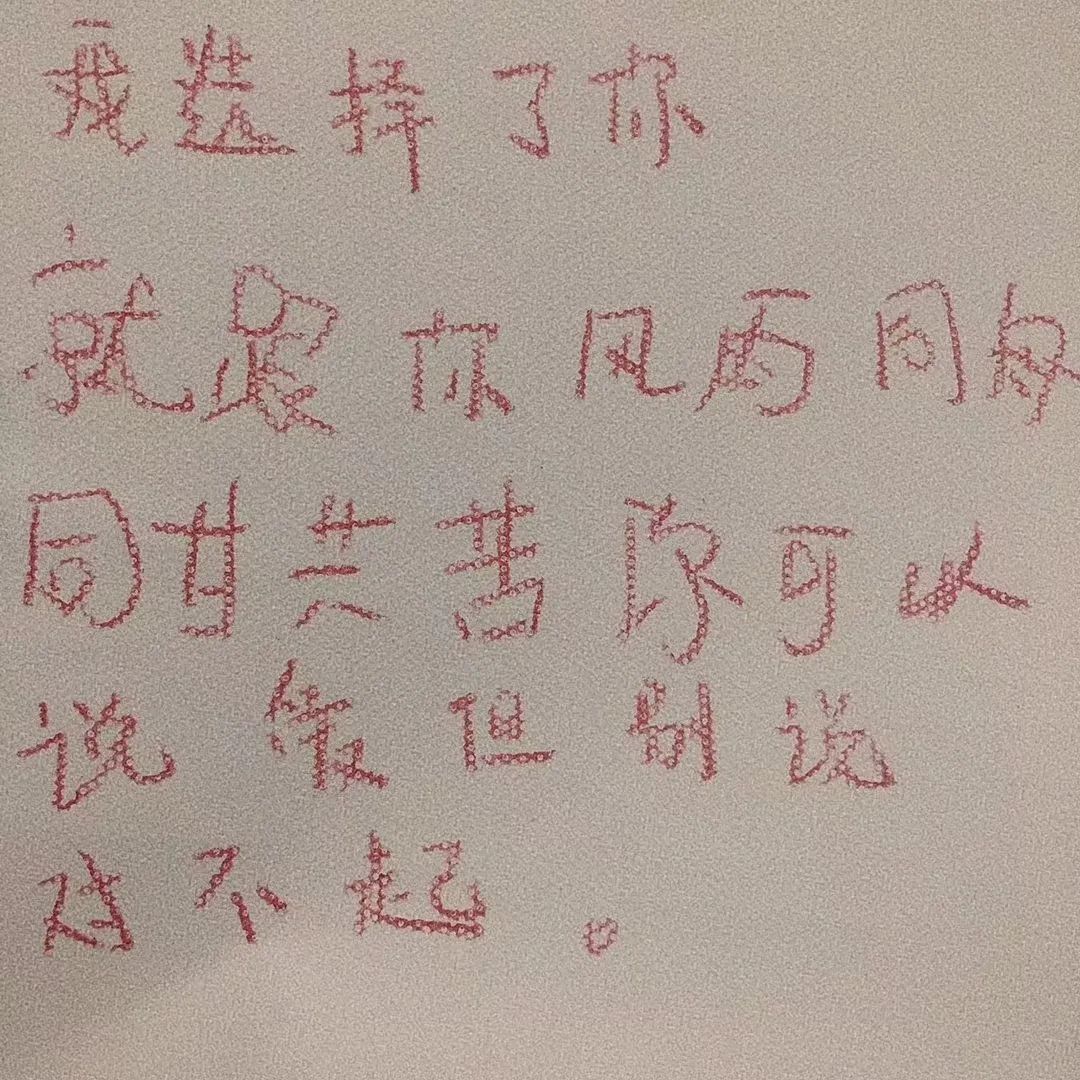 我选择了你
就跟你风雨同舟
同甘共苦你可以
说傲但别说
对不起。